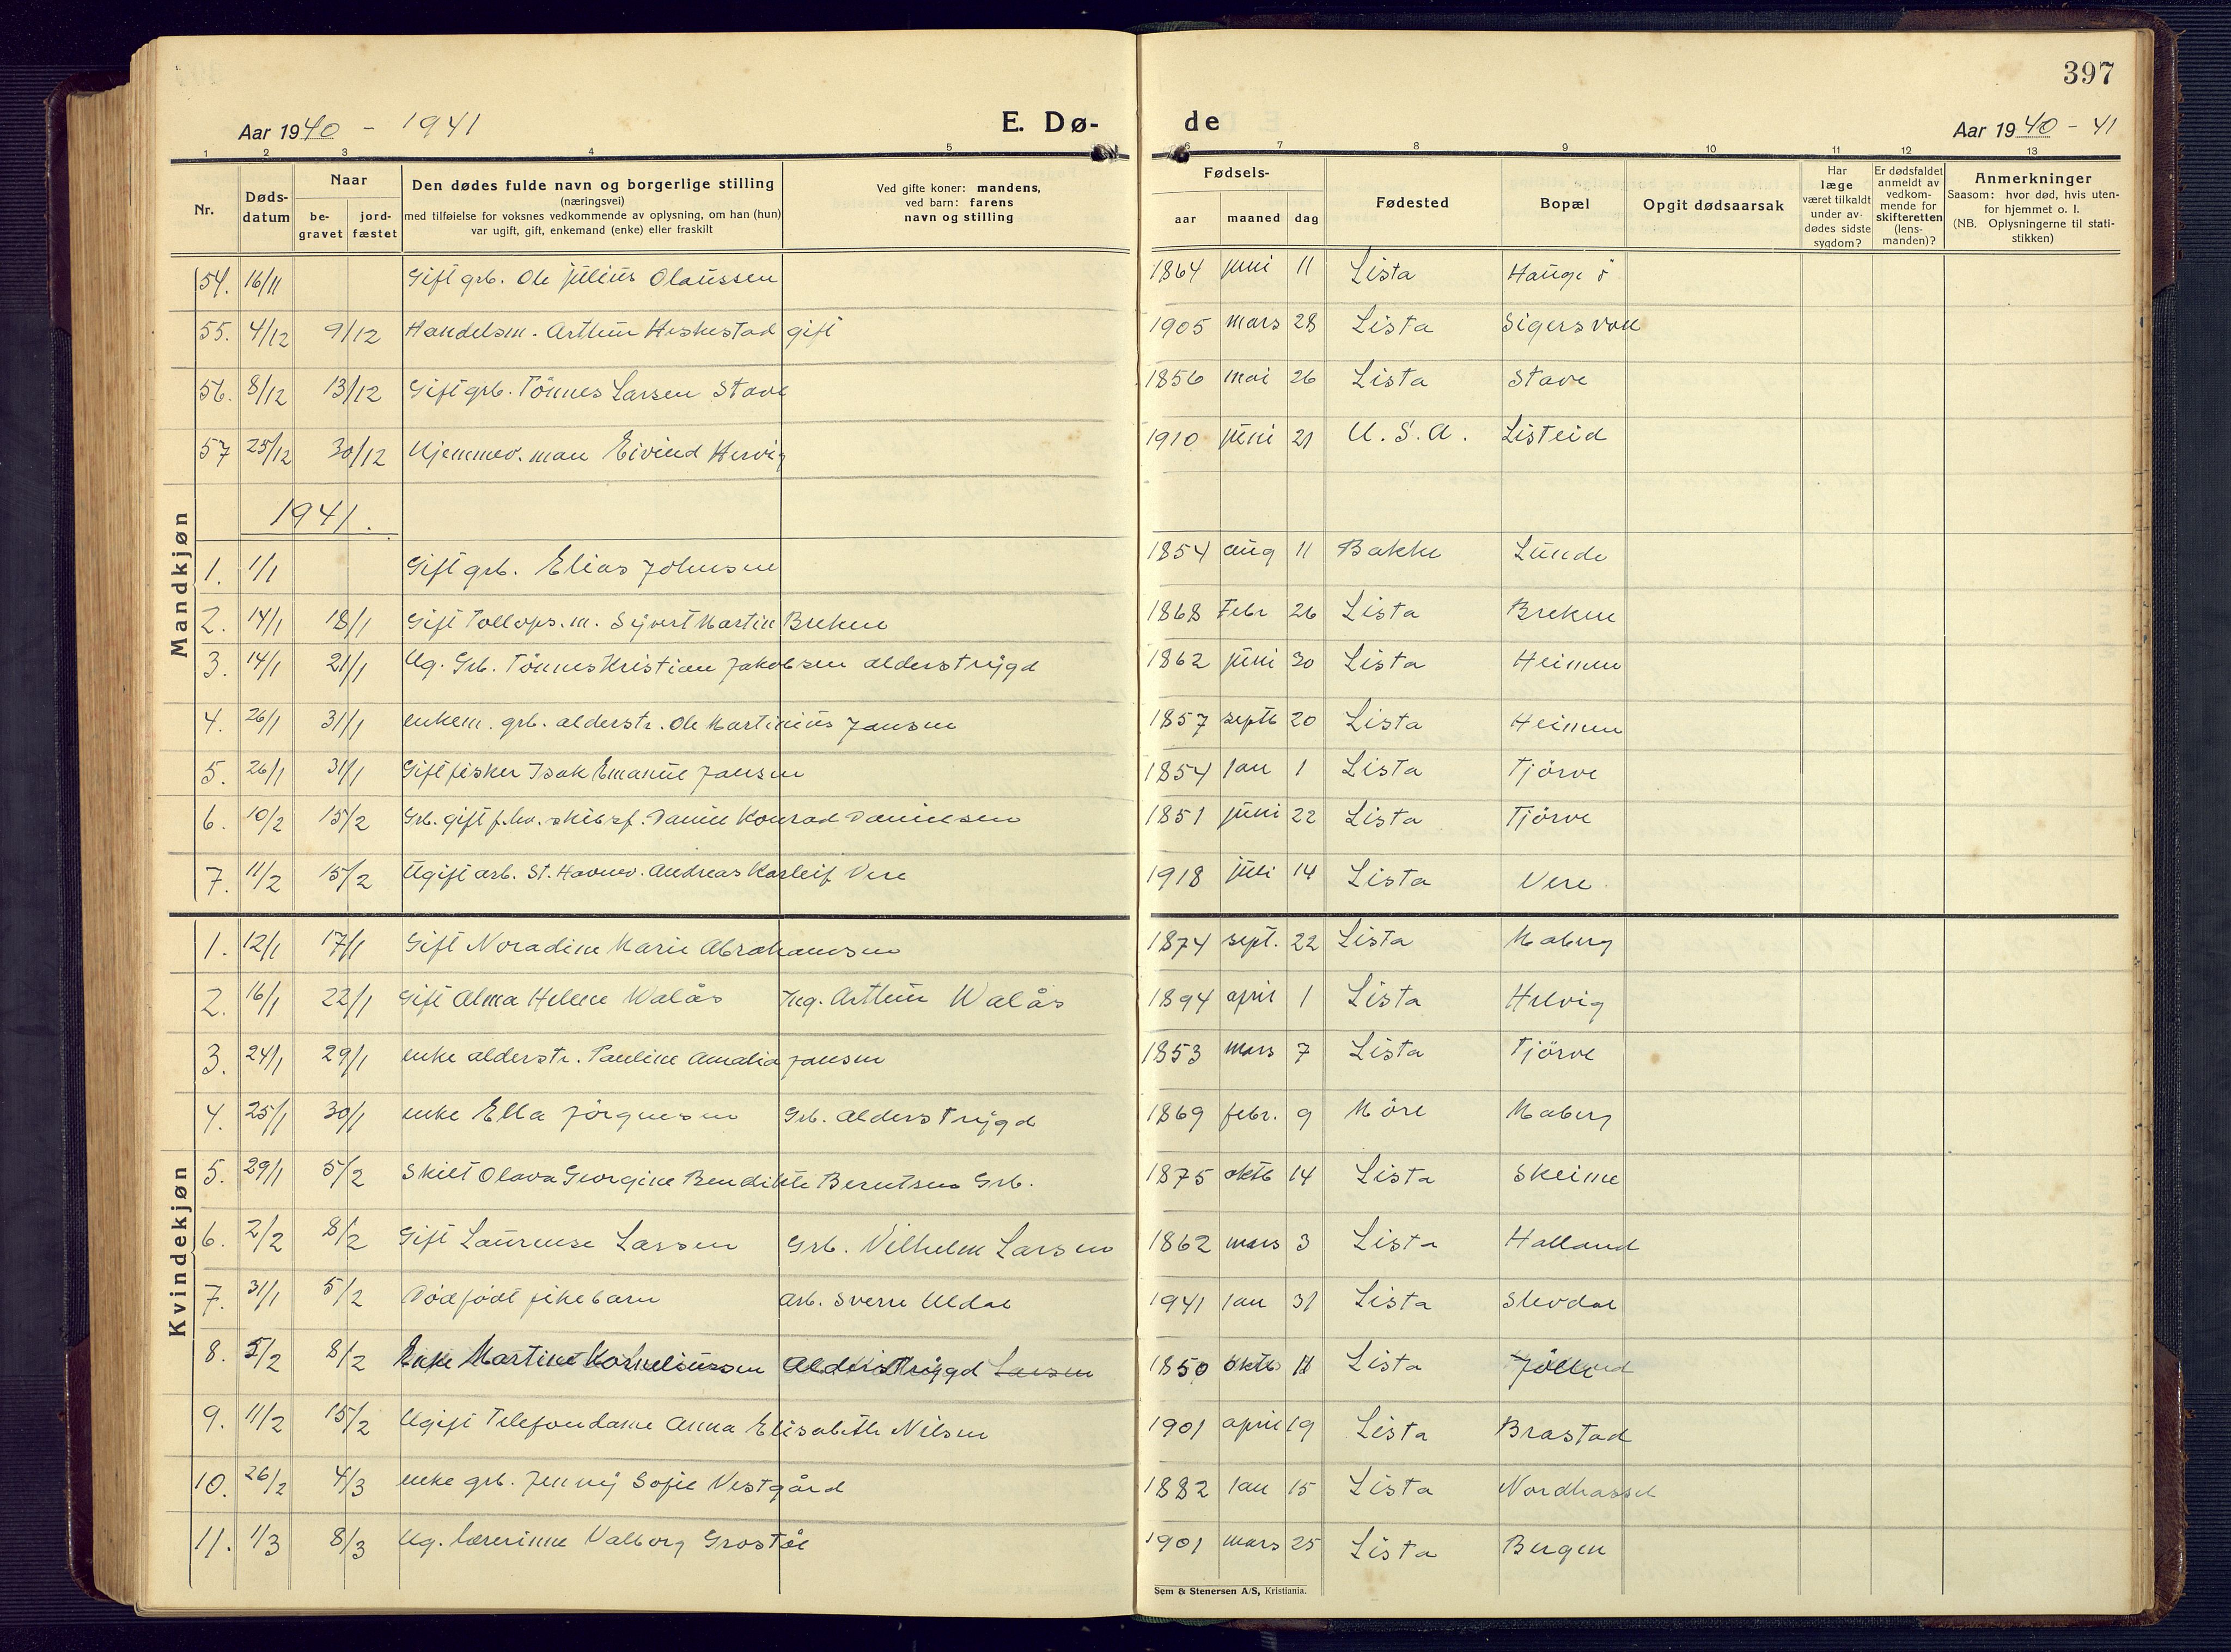 397
Aar 1940 - 1941 E. Dø- de Aar 1940 - 41
1 2 3 4 5 6 7 8 9 10 11 12 13
Nr. Døds-datum Naar be-gravet jord-fæstet Den dødes fulde navn og borgerlige stilling (næringsvei) med tilføielse for voksnes vedkommende av oplysning, om han (hun) var ugift, gift, enkemand (enke) eller fraskilt Ved gifte koner: mandens, ved barn: farens navn og stilling Fødsels- aar maaned dag Fødested Bopæl Opgit dødsaarsak Har læge været tilkaldt under av-dødes sidste sygdom? Er dødsfaldet anmeldt av vedkom-mende for skifteretten (lens-manden)? Anmerkninger Saasom: hvor død, hvis uten-for hjemmet o. l. (NB. Oplysningerne til stati-stikken)
Mandkjøn
54. 16/11 Gift grb. Ole Julius Olaussen 1864 juni 11 Lista Hauge ö
55. 4/12 9/12 Handelsm. Arthur Heskestad gift 1905 mars 28 Lista Sigersvoll
56. 8/12 13/12 Gift grb. Tönnes Larsen Stave 1856 mai 26 Lista Stave
57 25/12 30/12 Hjemmev. man Eivind Hervig 1910 juni 21 U.S.A. Listeid
1941.
1. 1/1 Gift grb. Elias Johnsen 1854 aug 11 Bakke Lunde
2. 14/1 18/1 Gift Tollops.m. Sigvert Martin Brekne 1868 Febr 26 Lista Brekne
3. 14/1 21/1 Ug. Grb. Tönnes Kristian Jakobsen alderstrygd 1862 juni 30 Lista Heimen
4. 26/1 31/1 enkem. grb. alderstr. Ole Martinius Jansen 1857 septb 20 Lista Heimen
5. 26/1 31/1 Gift fisker Isak Emanuel Jansen 1854 Jan 1 Lista Tjörve
6. 10/2 15/2 Grb. gift f.hv. skibsf. Daniel Konrad Danielsen 1851 juni 22 Lista Tjörve
7. 11/2 15/2 Ugift arb. St. Havnev. Andreas Karleif Vere 1918 juli 14 Lista Vere
Kvindekjøn
1. 12/1 17/1 Gift Noradine Marie Abrahamsen 1874 sept. 22 Lista Maberg
2. 16/1 22/1 Gift Alma Helene Walås Ing. Arthur Walås 1894 april 1 Lista Helvig
3. 24/1 29/1 enke alderstr. Pauline Amalia Jansen 1853 mars 7 Lista Tjörve
4. 25/1 30/1 enke Ella Jörgensen Grb. Alderstrygd 1869 febr. 9 Möre Maberg
5. 29/1 5/2 Skilt Olava Georgine Bendikte Berntsen Grb. 1875 oktb 14 Lista Skeime
6. 2/2 8/2 Gift Laurense Larsen Grb. Vilhelm Larsen 1862 mars 3 Lista Halland
7. 31/1 5/2 Dödfödt pikebarn arb. Sverre Uldal 1941 Jan 31 Lista Slevdal
8. 5/2 8/2 Enke Martine Korneliussen Alderstrygd Larsen 1850 oktb 11 Lista Jölle
9. 11/2 15/2 Ugift Telefondame Anna Elisabeth Nilsen 1901 april 19 Lista Brastad
10. 26/2 4/3 enke grb. Jenny Sofie Vestgård 1882 Jan 15 Lista Nordhassel
11. 1/3 8/3 Ug. lærerinne Valborg Grostøl 1901 mars 25 Lista Bergen
Sem & Stenersen A/S, Kristiania.